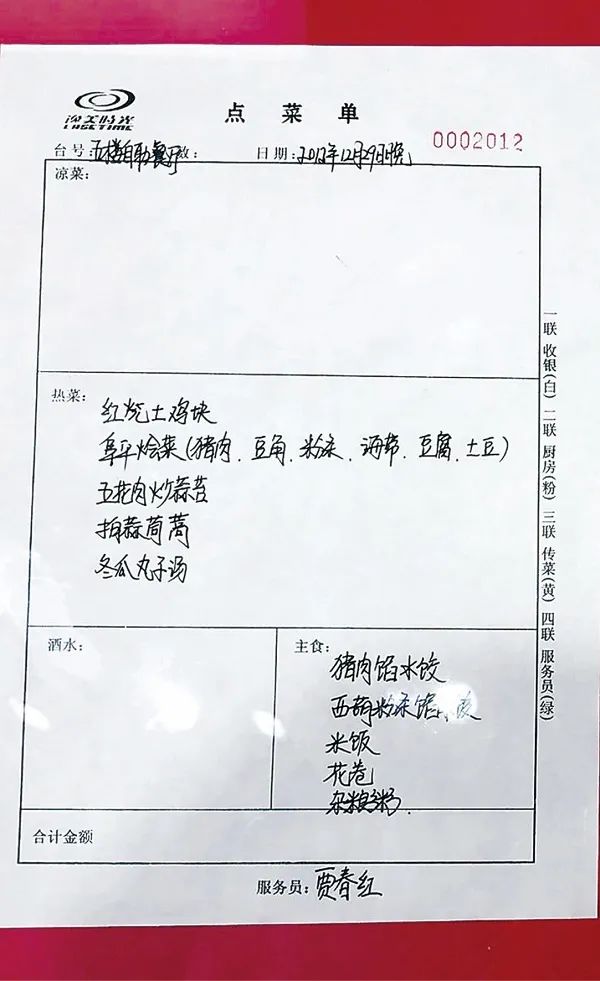 LASETIME
点菜单
0002012
台号:五楼自助餐厅 数: 日期:2012年12月29日晚
凉菜:
热菜:
红烧土鸡块
阜平烩菜(猪肉、豆角、粉条、海带、豆腐、土豆)
五花肉炒蒜苔
拍蒜茼蒿
冬瓜丸子汤
酒水:
主食:
猪肉馅水饺
西葫粉条馅
米饭
花卷
杂粮粥
合计金额
服务员:贾春红
一联 收银(白) 二联 厨房(粉) 三联 传菜(黄) 四联 服务员(绿)